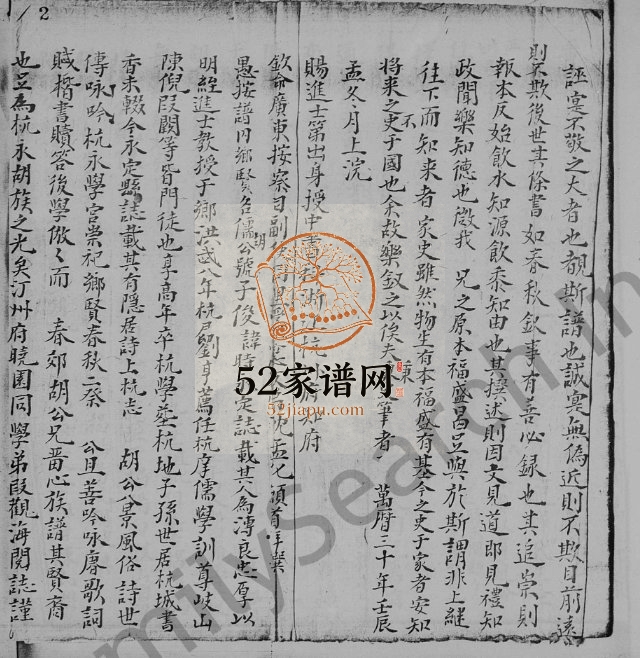 /2
誣寔不敬之大者也觀斯譜也誠寔無偽近則不欺目前遠
則不欺後世其條書如春秋敘事有善必錄也其追崇則
報本反始飲水知源飲黍知由也其撰述則因文見道即見禮知
政聞樂知德也微我 兄之原本福盛昌豈與於斯謂非上継
往下而知来者 家史雖然物生有本福盛有基今之史于家者安知
不
將来之史于國也余故樂敘之以俟夫秉筆者 萬曆三十年壬辰
孟冬月上浣
賜進士第出身授中書 浙江杭 府知府
欽命廣東按察司副 頓首拜撰
愚按譜内鄉賢名儒胡公號子俊諱時 定誌載其人為溥良忠厚以
明經進士教授于鄉洪武八年杭尹劉亨薦任杭庠儒學訓導岐山
陳倪段闕等皆門徒也享高年卒杭學塟杭地子孫世居杭城書
香未輟今永定縣誌載其有隱居詩上杭志 胡公八景風俗詩世
傳咏吟杭永學宫崇祀鄉賢春秋二祭 公且善吟咏賡歌詞
賦楷書牘答後學倣々而 春郊胡公兄畱心族譜其賢裔
也豈為杭永胡族之光矣汀州府曉園同學弟段觀海閱誌謹
52家谱网
52jiapu.com
milySearch.in